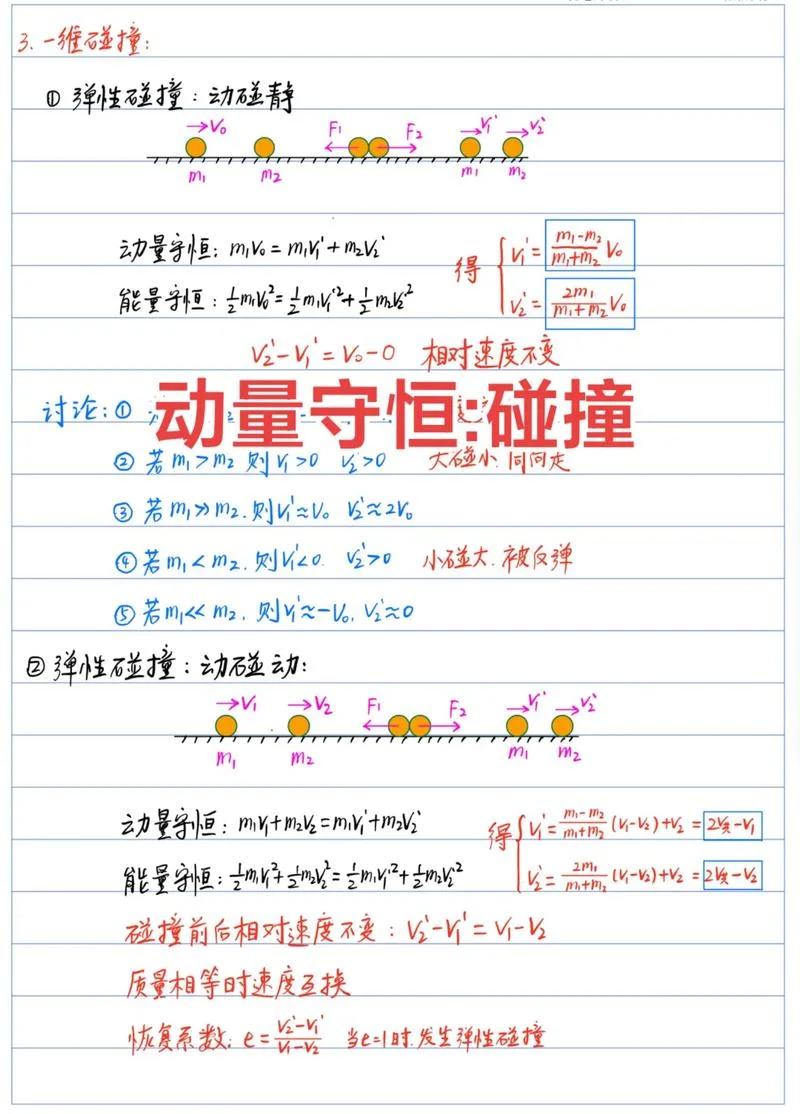 3. 一维碰撞:
① 弹性碰撞: 动碰静
→V₀ F₁ F₂ →V₁' →V₂'
m₁ m₂ m₁ m₂
动量守恒: m₁V₀=m₁V₁'+m₂V₂'
能量守恒: ½m₁V₀²=½m₁V₁'²+½m₂V₂'²
得 { V₁'=(m₁-m₂)/(m₁+m₂) V₀
V₂'=2m₁/(m₁+m₂) V₀
V₂'-V₁'=V₀-0 相对速度不变
动量守恒:碰撞
讨论: ①
② 若m₁>m₂ 则V₁>0 V₂'>0 大碰小 同向走
③ 若m₁≫m₂. 则V₁'≈V₀ V₂'≈2V₀
④ 若m₁<m₂. 则V₁'<0. V₂'>0 小碰大. 被反弹
⑤ 若m₁≪m₂. 则V₁'≈-V₀. V₂'≈0
② 弹性碰撞: 动碰动:
→V₁ →V₂ F₁ F₂ →V₁' →V₂'
m₁ m₂ m₁ m₂
动量守恒: m₁V₁+m₂V₂=m₁V₁'+m₂V₂'
能量守恒: ½m₁V₁²+½m₂V₂²=½m₁V₁'²+½m₂V₂'²
得 { V₁'=(m₁-m₂)/(m₁+m₂) (V₁-V₂)+V₂ = 2V共-V₁
V₂'=2m₁/(m₁+m₂) (V₁-V₂)+V₂ = 2V共-V₂
碰撞前后相对速度不变: V₂'-V₁'=V₁-V₂
质量相等时速度互换
恢复系数: e=(V₂'-V₁')/(V₁-V₂) 当e=1时.发生弹性碰撞